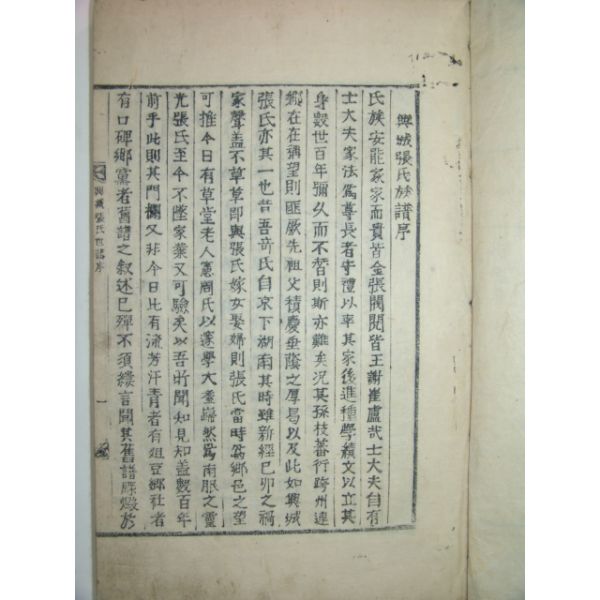 興城張氏族譜序
氏族安能家家而貴皆金張閥閱皆王謝崔盧哉士大夫自有
士大夫家法爲尊長者守禮以率其家後進種學績文以立其
身數世百年彌久而不替則斯亦難矣况其孫枝蕃衍跨州連
鄉在在稱望則匪厥先祖父積慶垂蔭之厚曷以及此如興城
張氏亦其一也昔吾奇氏自京下湖南其時雖新經己卯之禍
家聲盖不草草即與張氏嫁女娶婦則張氏當時爲鄉邑之望
可推今日有草堂老人憲周氏以家學大耋巋然爲南服之靈
光張氏至今不墜家業又可驗矣以吾所聞知見知盖數百年
前乎此則其門欄又非今日比有流芳汗青者有俎豆鄉社者
有口碑鄉黨者舊譜之叙述已殫不須縷言聞其舊譜縣燬於
興城張氏世譜序
一